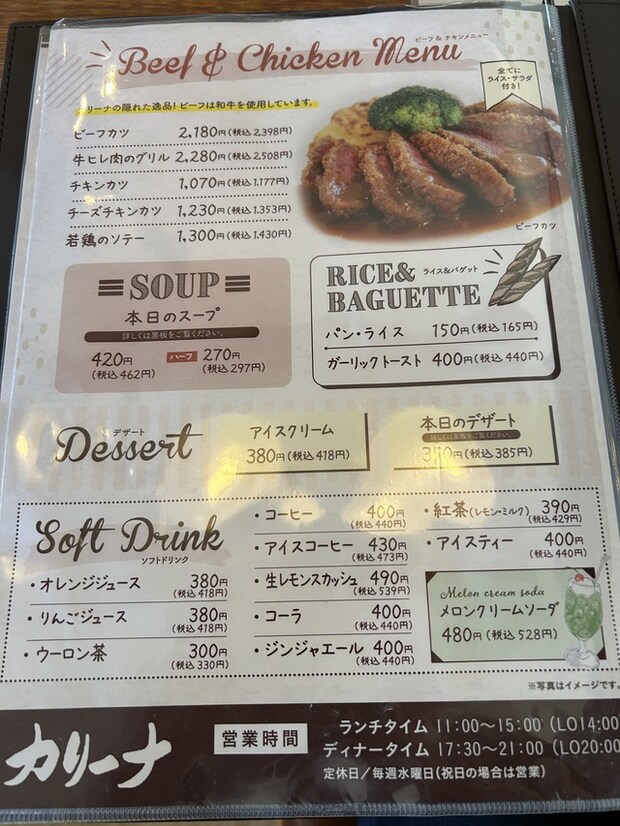 ビーフ & チキンメニュー
Beef & Chicken Menu
全てに
ライス・サラダ
付き!
カリーナの隠れた逸品! ビーフは和牛を使用しています。
ビーフカツ 2,180円(税込 2,398円)
牛ヒレ肉のグリル 2,280円(税込 2,508円)
チキンカツ 1,070円(税込 1,177円)
チーズチキンカツ 1,230円(税込 1,353円)
若鶏のソテー 1,300円(税込 1,430円)
ビーフカツ
SOUP
本日のスープ
詳しくは黒板をご覧ください。
420円 ハーフ 270円
(税込 462円) (税込 297円)
RICE& ライス&バゲット
BAGUETTE
パン・ライス 150円(税込 165円)
ガーリックトースト 400円(税込 440円)
デザート
Dessert
アイスクリーム
380円(税込 418円)
本日のデザート
詳しくは黒板をご覧ください。
350円(税込 385円)
Soft Drink
ソフトドリンク
・オレンジジュース 380円
(税込 418円)
・りんごジュース 380円
(税込 418円)
・ウーロン茶 300円
(税込 330円)
・コーヒー 400円
(税込 440円)
・アイスコーヒー 430円
(税込 473円)
・生レモンスカッシュ 490円
(税込 539円)
・コーラ 400円
(税込 440円)
・ジンジャエール 400円
(税込 440円)
・紅茶(レモン・ミルク) 390円
(税込 429円)
・アイスティー 400円
(税込 440円)
Melon cream soda
メロンクリームソーダ
480円(税込 528円)
※写真はイメージです。
カリーナ
営業時間
ランチタイム 11:00〜15:00 (LO14:00
ディナータイム 17:30〜21:00 (LO20:00
定休日/毎週水曜日(祝日の場合は営業)